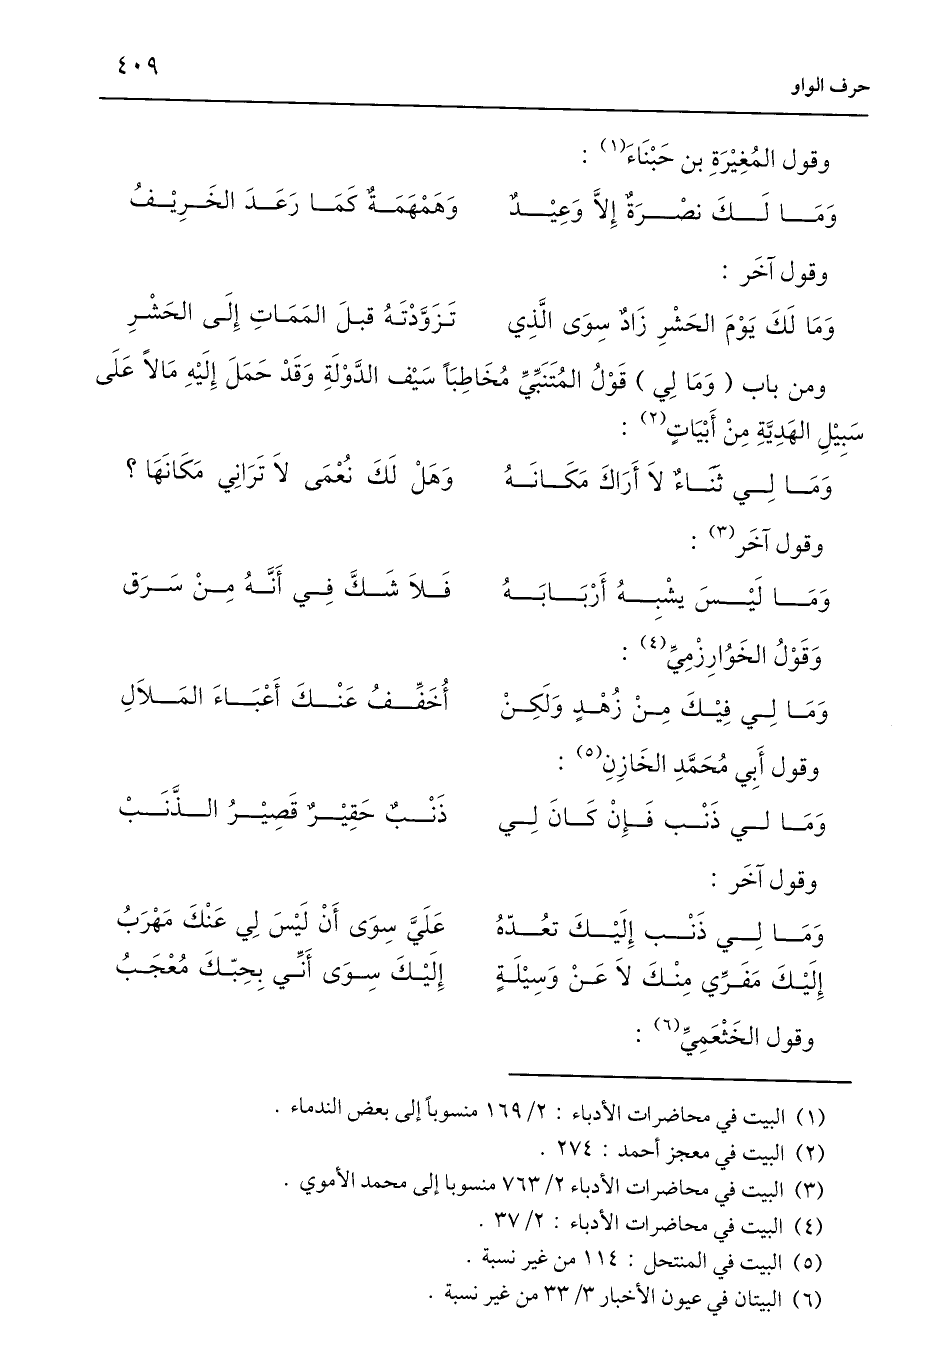 ٤٠٩
حرف الواو
وقول المُغِيْرَةِ بن حَبْنَاءَ(١) :
وَمَا لَكَ نصْرَةٌ إِلاَّ وَعِيْدٌ وَهَمْهَمَةٌ كَمَا رَعَدَ الخَرِيْفُ
وقول آخَر :
وَمَا لَكَ يَوْمَ الحَشْرِ زَادٌ سِوَى الَّذِي تَزَوَّدْتَهُ قبلَ المَمَاتِ إِلَى الحَشْرِ
ومن باب ( وَمَا لِي ) قَوْلُ المُتَنَبِّيِّ مُخَاطِبَاً سَيْف الدَّوْلَةِ وَقَدْ حَمَلَ إِلَيْهِ مَالاً عَلَى
سَبِيْلِ الهَدِيَّةِ مِنْ أَبْيَاتٍ(٢) :
وَمَا لِي ثَنَاءٌ لاَ أَرَاكَ مَكَانَهُ وَهَلْ لَكَ نُعْمَى لاَ تَرَانِي مَكَانَهَا ؟
وقول آخَر(٣) :
وَمَا لَيْسَ يشْبِهُ أَرْبَابَهُ فَلاَ شَكَّ فِي أَنَّهُ مِنْ سَرَق
وَقَوْلُ الخَوُارِزْمِيِّ(٤) :
وَمَا لِي فِيْكَ مِنْ زُهْدٍ وَلَكِنْ أُخَفِّفُ عَنْكَ أَعْبَاءَ المَلاَلِ
وقول أَبِي مُحَمَّدِ الخَازِنِ(٥) :
وَمَا لي ذَنْب فَإِنْ كَانَ لِي ذَنْبٌ حَقِيْرٌ قَصِيْرُ الذَّنَبْ
وقول آخَر :
وَمَا لِي ذَنْب إِلَيْكَ تعُدّهُ عَلَيَّ سِوَى أَنْ لَيْسَ لِي عَنْكَ مَهْرَبُ
إِلَيْكَ مَفَرِّي مِنْكَ لاَ عَنْ وَسِيْلَةٍ إِلَيْكَ سِوَى أَنِّي بِحِبّكَ مُعْجَبُ
وقول الخَثْعَمِيِّ(٦) :
(١) البيت في محاضرات الأدباء : ٢/ ١٦٩ منسوباً إلى بعض الندماء .
(٢) البيت في معجز أحمد : ٢٧٤ .
(٣) البيت في محاضرات الأدباء ٢/ ٧٦٣ منسوبا إلى محمد الأموي .
(٤) البيت في محاضرات الأدباء : ٢/ ٣٧ .
(٥) البيت في المنتحل : ١١٤ من غير نسبة .
(٦) البيتان في عيون الأخبار ٣/ ٣٣ من غير نسبة .